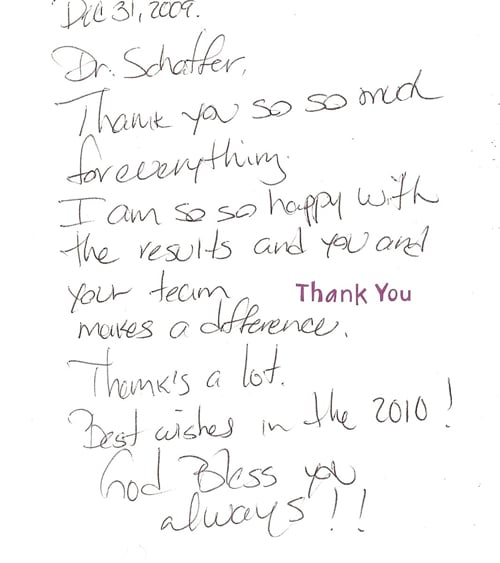 Dec 31, 2009.
Dr. Schaffer,
Thank you so so much
for everything.
I am so so happy with
the results and you and
your team
Thank You
makes a difference.
Thank's a lot.
Best wishes in the 2010!
God Bless you
always!!